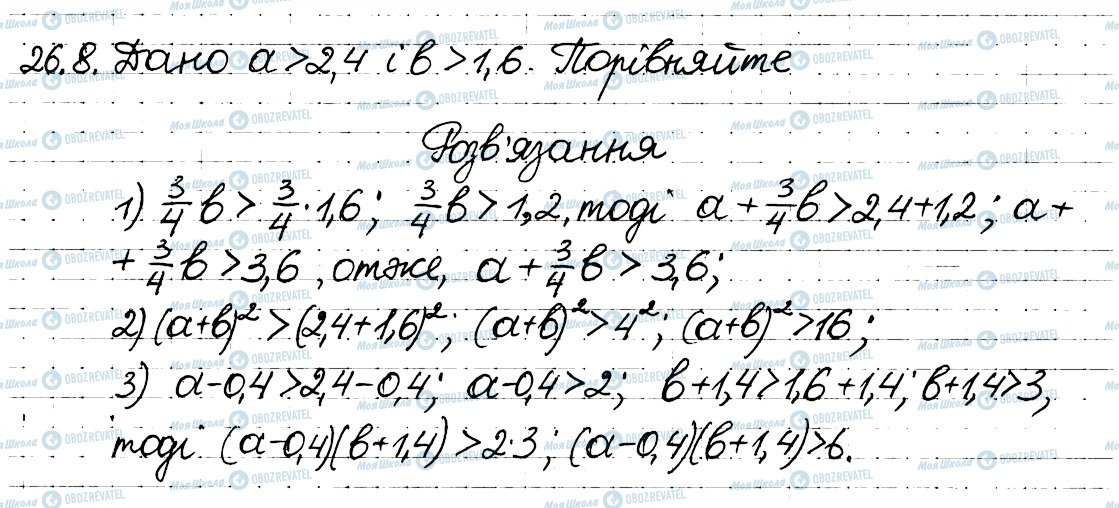 26.8. Дано a > 2,4 і b > 1,6. Порівняйте
Розв'язання
1) 3/4 b > 3/4 · 1,6; 3/4 b > 1,2, тоді a + 3/4 b > 2,4 + 1,2; a +
+ 3/4 b > 3,6, отже, a + 3/4 b > 3,6;
2) (a+b)² > (2,4+1,6)²; (a+b)² > 4²; (a+b)² > 16;
3) a - 0,4 > 2,4 - 0,4; a - 0,4 > 2; b + 1,4 > 1,6 + 1,4; b + 1,4 > 3,
тоді (a - 0,4)(b + 1,4) > 2·3; (a - 0,4)(b + 1,4) > 6.